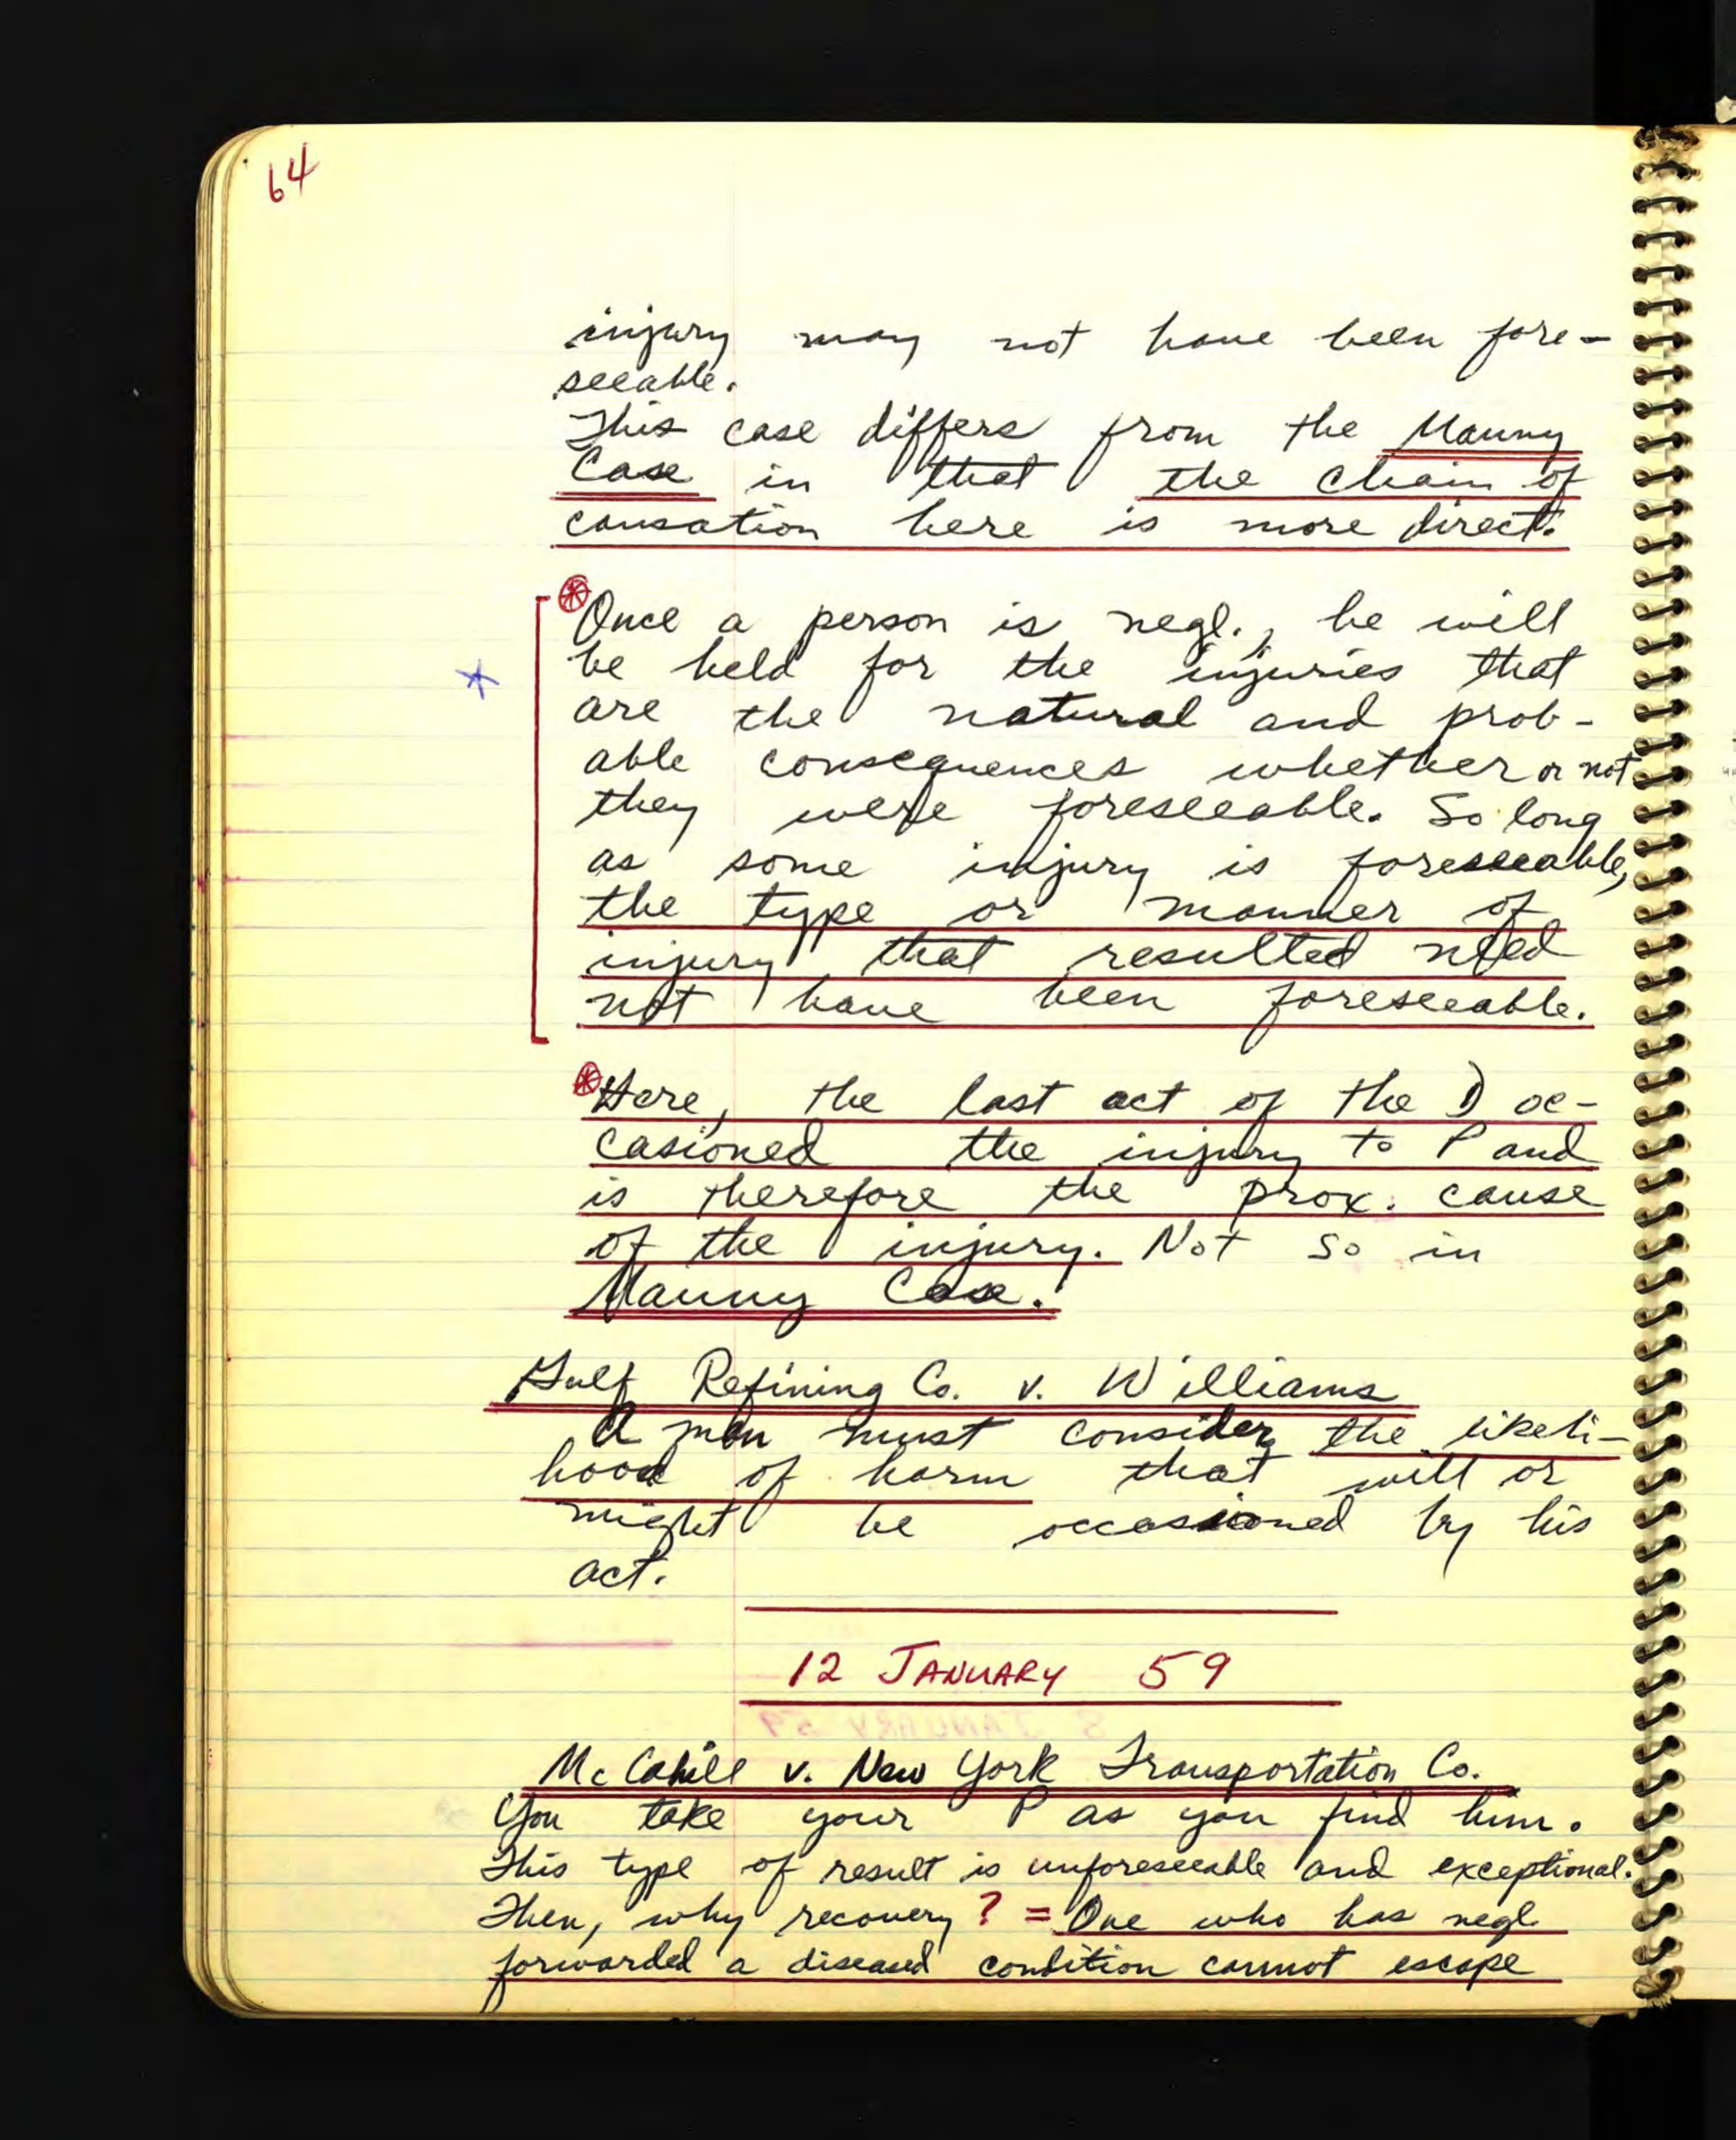 64
injury may not have been fore-
seeable.
This case differs from the Manny
Case in that the chain of
causation here is more direct.
Once a person is negl., he will
be held for the injuries that
are the natural and prob-
able consequences whether or not
they were foreseeable. So long
as some injury is foreseeable,
the type or manner of
injury that resulted need
not have been foreseeable.
Here, the last act of the D oc-
casioned the injury to P and
is therefore the prox. cause
of the injury. Not so in
Manny Case.
Gulf Refining Co. v. Williams
A man must consider the likeli-
hood of harm that will or
might be occasioned by his
act.
12 JANUARY 59
McCahill v. New York Transportation Co.
You take your P as you find him.
This type of result is unforeseeable and exceptional.
Then, why recovery ? = One who has negl
forwarded a diseased condition cannot escape